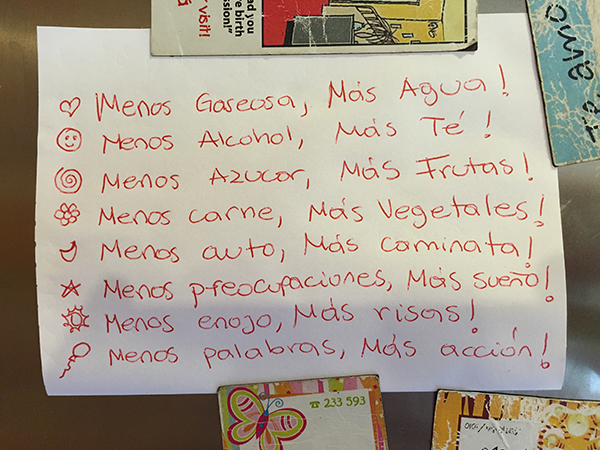 visit!
ad you
re birth
ession!"
á
te amo
¡Menos Gaseosa, Más Agua!
Menos Alcohol, Más Té!
Menos Azucar, Más Frutas!
Menos carne, Más Vegetales!
Menos auto, Más caminata!
Menos preocupaciones, Más sueño!
Menos enojo, Más risas!
Menos palabras, Más acción!
☎ 233 593